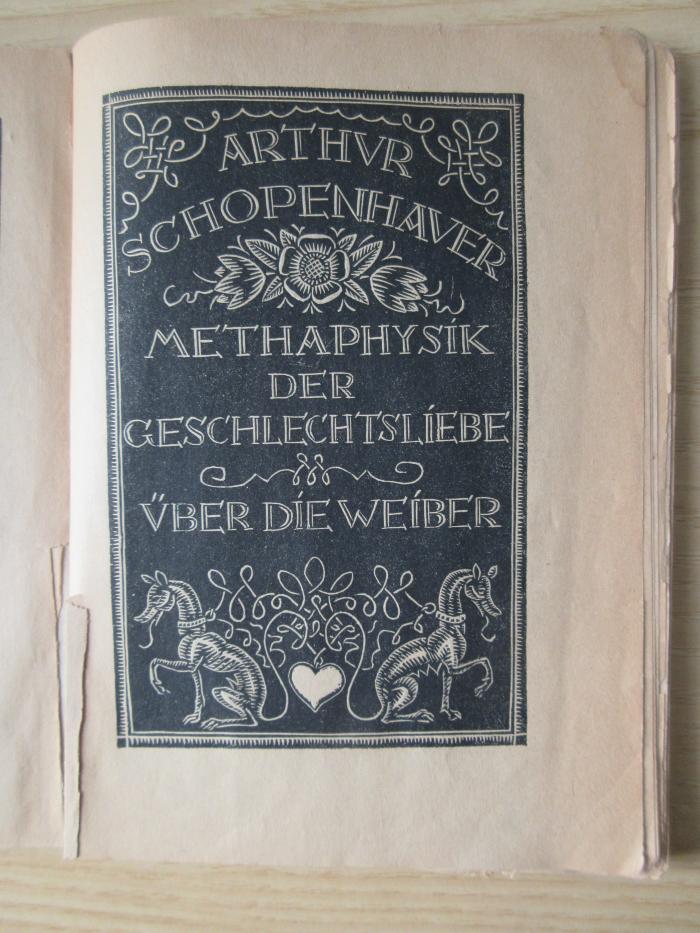 ARTHVR
SCHOPENHAVER
METHAPHYSÍK
DER
GESCHLECHTSLÍEBE
ṺBER DÍE WEÍBER